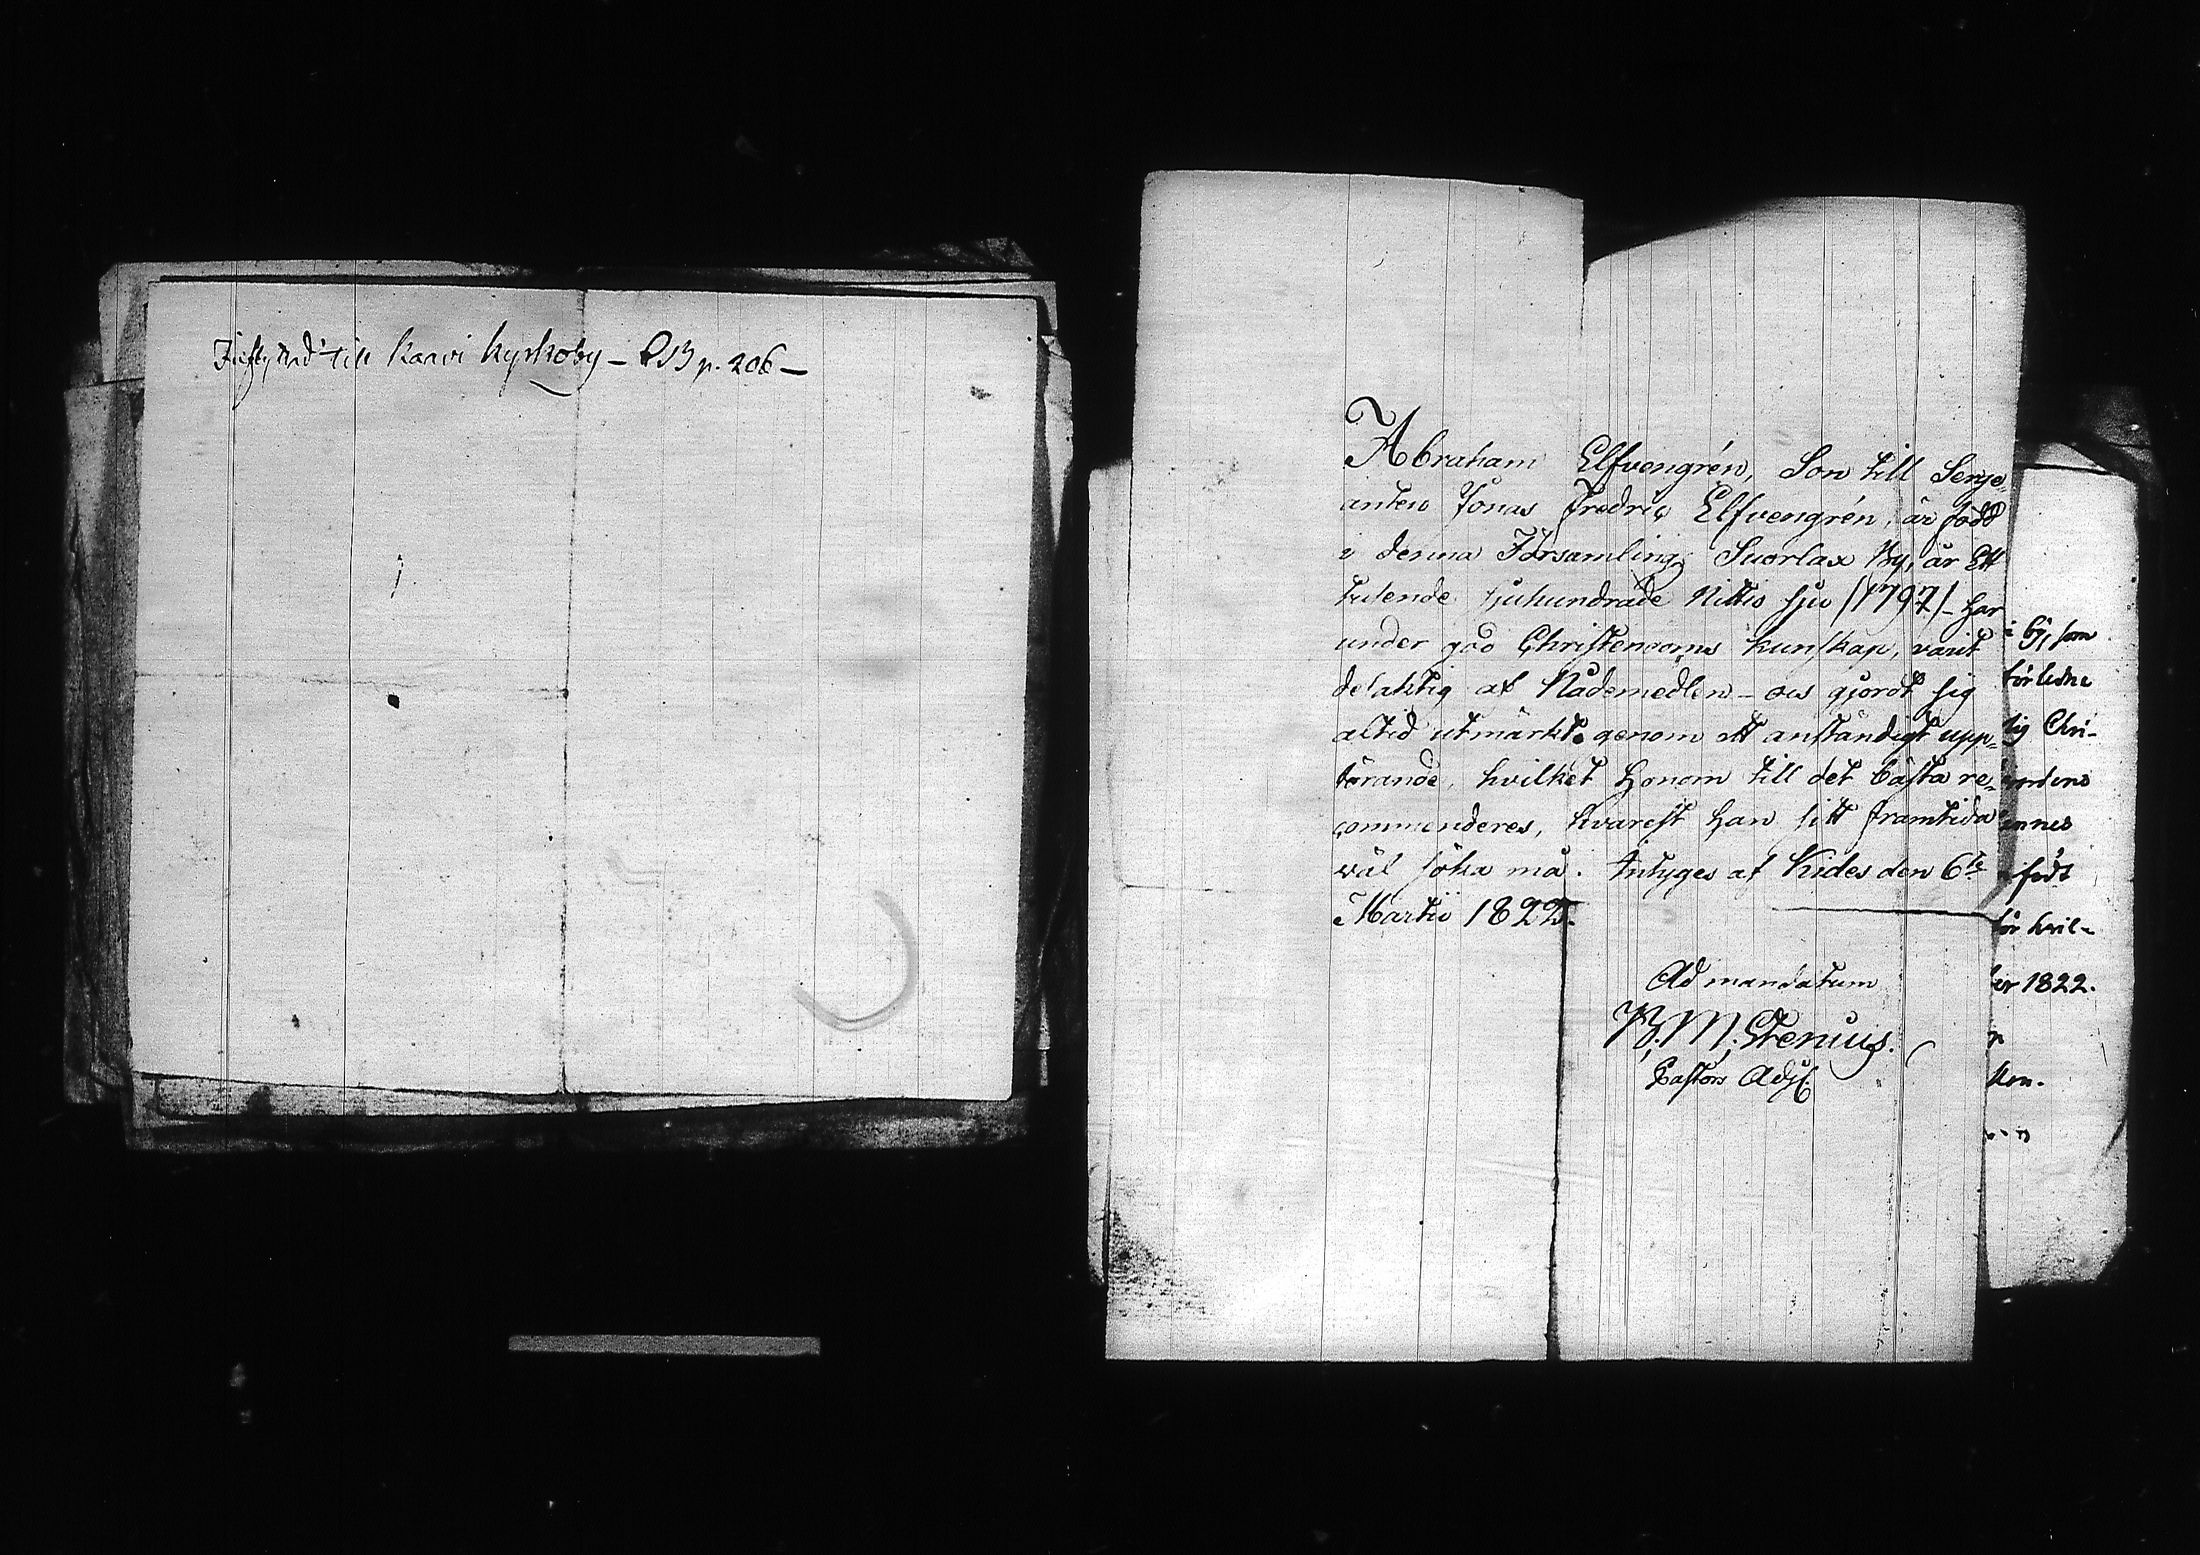 Inflyttad till Karvi kyrkoby – CB p. 206 –
Abraham Elfvengrén, Son till Serge-
anten Jonas Fredric Elfvengrén, är född
i denna Församling, Suorlax By, år Ett
tusende sjuhundrade Nittio sju /1797/ – har
under god Christendoms kunskap, varit
delaktig af Nådemedlen – ocs gjordt sig
altid utmärkt genom ett anständigt upp-
förande, hvilket Honom till det bästa re-
commenderes, hvarest han sitt framtida
wäl söka må. Intyges af Kides den 6te
Martii 1822.
Ad mandatum
B. M. Stenius.
Pastors Adj.
i by, som
förledne
tig Chri-
innes
född
för hvil-
er 1822.